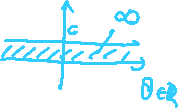 ∞
C
θ∈ℝ